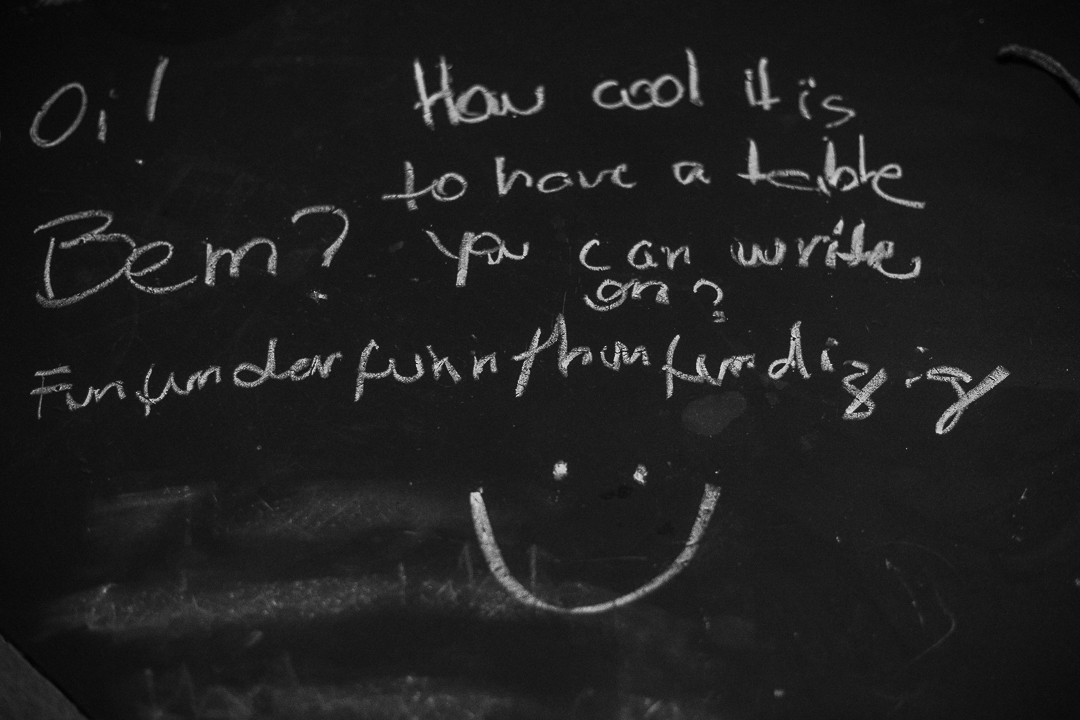 Oi!
How cool it is
to have a table
Bem?
you can write
on?